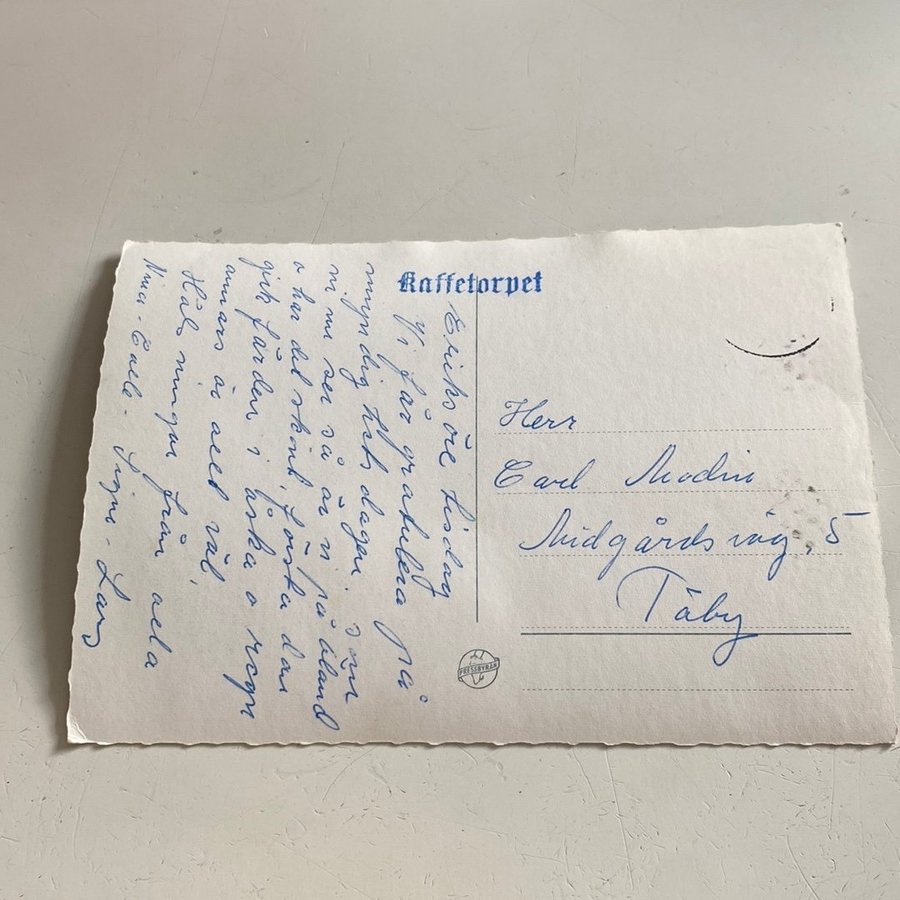 Kaffetorpet
Eriksöre tisdag
Vi får gratulera på
myndighetsdagen. Som
ni nu ser så är vi på Öland
o har det skönt, första dan
gick färden i åska o regn
annars är allt väl.
Hälsningar från alla
Nina - Calle - Signe - Lars
Herr
Carl Modin
Midgårdsväg. 5
Täby
PRESSBYRÅN